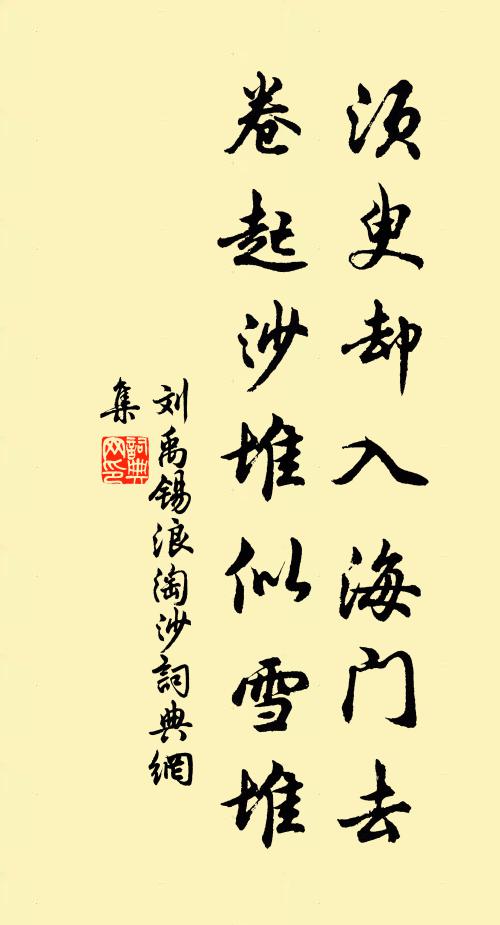 须叟却入海门去
卷起沙堆似雪堆
刘禹锡浪淘沙詞典網
集
詞典网印